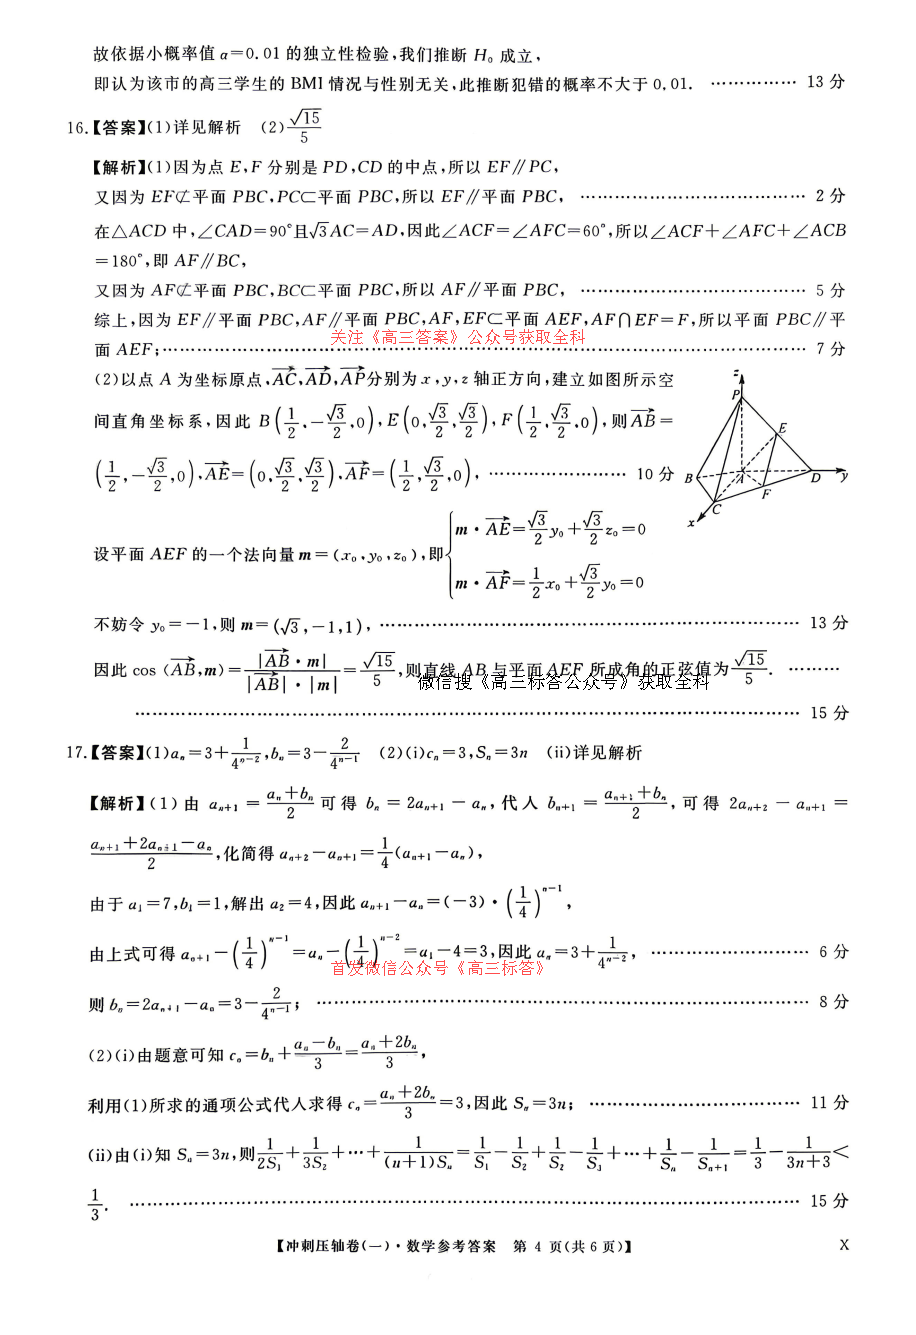 故依据小概率值 α=0.01 的独立性检验,我们推断 H₀ 成立,
即认为该市的高三学生的 BMI 情况与性别无关,此推断犯错的概率不大于 0.01. …………… 13 分
16.【答案】(1)详见解析 (2)√15/5
【解析】(1)因为点 E,F 分别是 PD,CD 的中点,所以 EF∥PC,
又因为 EF⊄平面 PBC,PC⊂平面 PBC,所以 EF∥平面 PBC, ………………………………… 2 分
在△ACD 中,∠CAD=90°且√3AC=AD,因此∠ACF=∠AFC=60°,所以∠ACF+∠AFC+∠ACB
=180°,即 AF∥BC,
又因为 AF⊄平面 PBC,BC⊂平面 PBC,所以 AF∥平面 PBC, ………………………………… 5 分
综上,因为 EF∥平面 PBC,AF∥平面 PBC,AF,EF⊂平面 AEF,AF∩EF=F,所以平面 PBC∥平
关注《高三答案》公众号获取全科
面 AEF;………………………………………………………………………………………… 7 分
(2)以点 A 为坐标原点,AC→,AD→,AP→分别为 x,y,z 轴正方向,建立如图所示空
间直角坐标系,因此 B(1/2,-√3/2,0),E(0,√3/2,√3/2),F(1/2,√3/2,0),则AB→=
(1/2,-√3/2,0),AE→=(0,√3/2,√3/2),AF→=(1/2,√3/2,0), …………………… 10 分
z
P
E
B
A
D
y
F
C
x
设平面 AEF 的一个法向量 m=(x₀,y₀,z₀),即{m·AE→=√3/2 y₀+√3/2 z₀=0
m·AF→=1/2 x₀+√3/2 y₀=0
不妨令 y₀=-1,则 m=(√3,-1,1), ………………………………………………………… 13 分
因此 cos⟨AB→,m⟩=|AB→·m|/(|AB→|·|m|)=√15/5,则直线 AB 与平面 AEF 所成角的正弦值为√15/5. ………
微信搜《高三标答公众号》获取全科
……………………………………………………………………………………………… 15 分
17.【答案】(1)aₙ=3+1/4ⁿ⁻²,bₙ=3-2/4ⁿ⁻¹ (2)(i)cₙ=3,Sₙ=3n (ii)详见解析
【解析】(1)由 aₙ₊₁=(aₙ+bₙ)/2 可得 bₙ=2aₙ₊₁-aₙ,代入 bₙ₊₁=(aₙ₊₁+bₙ)/2,可得 2aₙ₊₂-aₙ₊₁=
(aₙ₊₁+2aₙ₊₁-aₙ)/2,化简得 aₙ₊₂-aₙ₊₁=1/4(aₙ₊₁-aₙ),
由于 a₁=7,b₁=1,解出 a₂=4,因此 aₙ₊₁-aₙ=(-3)·(1/4)ⁿ⁻¹,
由上式可得 aₙ₊₁-(1/4)ⁿ⁻¹=aₙ-(1/4)ⁿ⁻²=a₁-4=3,因此 aₙ=3+1/4ⁿ⁻², …………………… 6 分
首发微信公众号《高三标答》
则 bₙ=2aₙ₊₁-aₙ=3-2/4ⁿ⁻¹; …………………………………………………………………… 8 分
(2)(i)由题意可知 cₙ=bₙ+(aₙ-bₙ)/3=(aₙ+2bₙ)/3,
利用(1)所求的通项公式代入求得 cₙ=(aₙ+2bₙ)/3=3,因此 Sₙ=3n; ……………………………… 11 分
(ii)由(i)知 Sₙ=3n,则1/2S₁+1/3S₂+…+1/(n+1)Sₙ=1/S₁-1/S₂+1/S₂-1/S₃+…+1/Sₙ-1/Sₙ₊₁=1/3-1/(3n+3)<
1/3. ……………………………………………………………………………………………… 15 分
【冲刺压轴卷(一)·数学参考答案 第 4 页(共 6 页)】 X